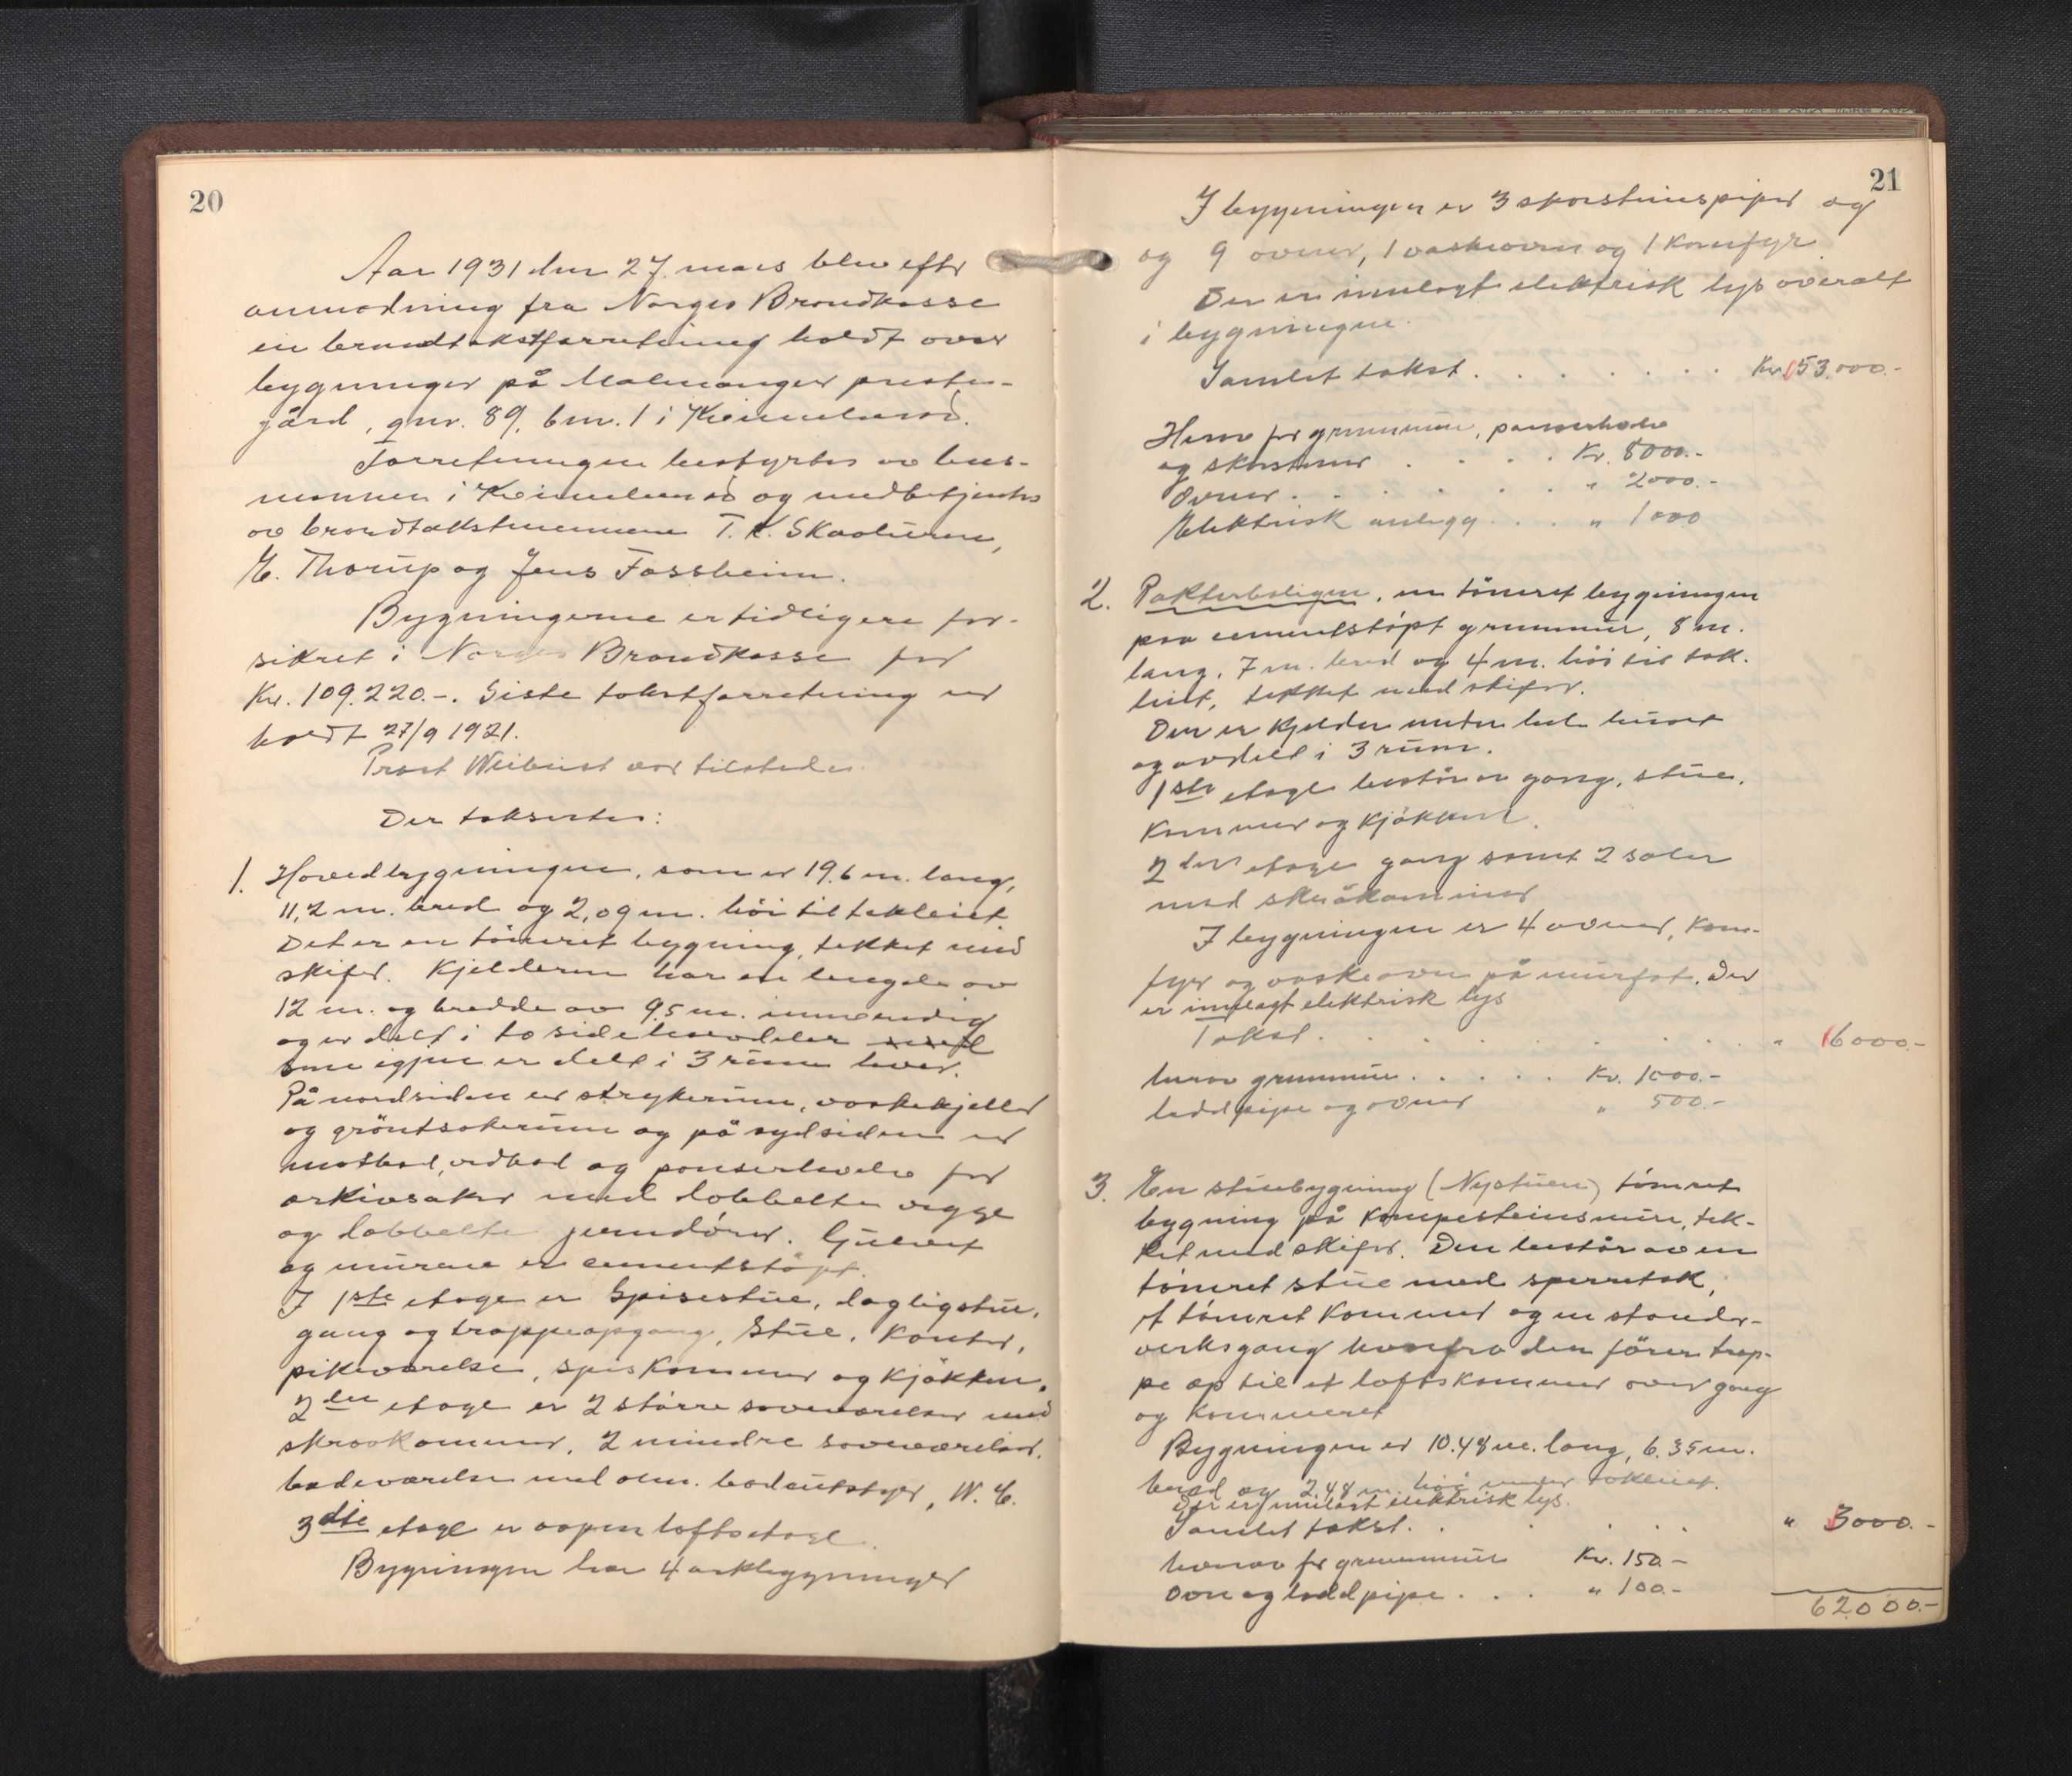 20
Aar 1931 den 27. mars blev efter
anmodning fra Norges Brandkasse
en brandtakstforretning holdt over
bygninger på Malmanger preste-
gård, gnr. 89, bnr. 1 i Kvinnherad.
Forretningen bestyrtes av lens-
mannen i Kvinnherad og medbetjentes
av brandtakstmennene T. K. Skaaluren,
E. Thorup og Jens Fossheim.
Bygningerne er tidligere for-
sikret i Norges Brandkasse for
Kr. 109.220.-. Siste takstforretning er
holdt 27/9 1921.
Prost Weibust var tilstede.
Der taksertes:
1. Hovedbygningen, som er 19,6 m. lang,
11,2 m. bred og 2,09 m. höi til takleiet.
Det er en tömret bygning, tekket med
skifer. Kjelderen har en lengde av
12 m. og bredde av 9.5 m. innvendig
og er delt i to sidehavdeler
som igjen er delt i 3 rum hver.
På nordsiden er strykerum, vaskekjeller
og gröntsakerum og på sydsiden er
matbod, vedbod og panserhvelv for
arkivsaker med dobbelte vegge
og dobbelte jerndörer. Gulvet
og murene er cementstöpt.
I 1ste etage er Spisestue, dagligstue,
gang og trappeopgang, Stue, Kontor,
pikeværelse, spiskammer og kjökken.
2den etage er 2 större soveværelser med
skraakammer, 2 mindre soveværelser,
badeværelse med alm. badeutstyr, W. C.
3die etage er aapen loftsetage.
Bygningen har 4 arkbygninger
21
I bygningen er 3 skorstenspiper og
og 9 ovner, 1 vaskeovn og 1 Komfyr.
Der er innlagt elektrisk lys overalt
i bygningen.
Samlet takst. . . . . . . . Kr. 53.000.-
Herav for grunnmur, panserhvelv
og skorstener . . . . Kr. 8000.-
Ovner. . . . . . " 2000.-
Elektrisk anlegg. . . . " 1000
2. Pakterboligen, en tömret bygningen
paa cementstöpt grunnmur, 8 m.
lang, 7 m. bred og 4 m. höi til tak-
leiet, tekket med skifer.
Der er Kjelder under hele huset
og avdelt i 3 rum.
1ste etage består av gang, stue,
Kammer og Kjökken.
2den etage gang samt 2 saler
med skråkammer
I bygningen er 4 ovner, Kom-
fyr og vaskeovn på murfot. Der
er innlagt elektrisk lys
Takst. . . . . . . . . " 6000.-
herav grunnmur. . . . . Kr. 1000.-
ladd pipe og ovner " 500.-
3. En stuebygning (Nystuen) tömret
bygning på Kampesteinsmur, tek-
ket med skifer. Den består av en
tömret stue med sperretak,
et tömret Kammer og en stander-
verksgang hvorfra den förer trap-
pe op til et loftskammer over gang
og Kammeret
Bygningen er 10.48 m. lang, 6.35 m.
bred og 2.48 m. höi under takleiet.
Der er innlagt elektrisk lys.
Samlet takst. . . . . " 3000.-
herav for grunnmur Kr. 150.-
Ovn og ladd pipe . . . " 100.-
62000.-